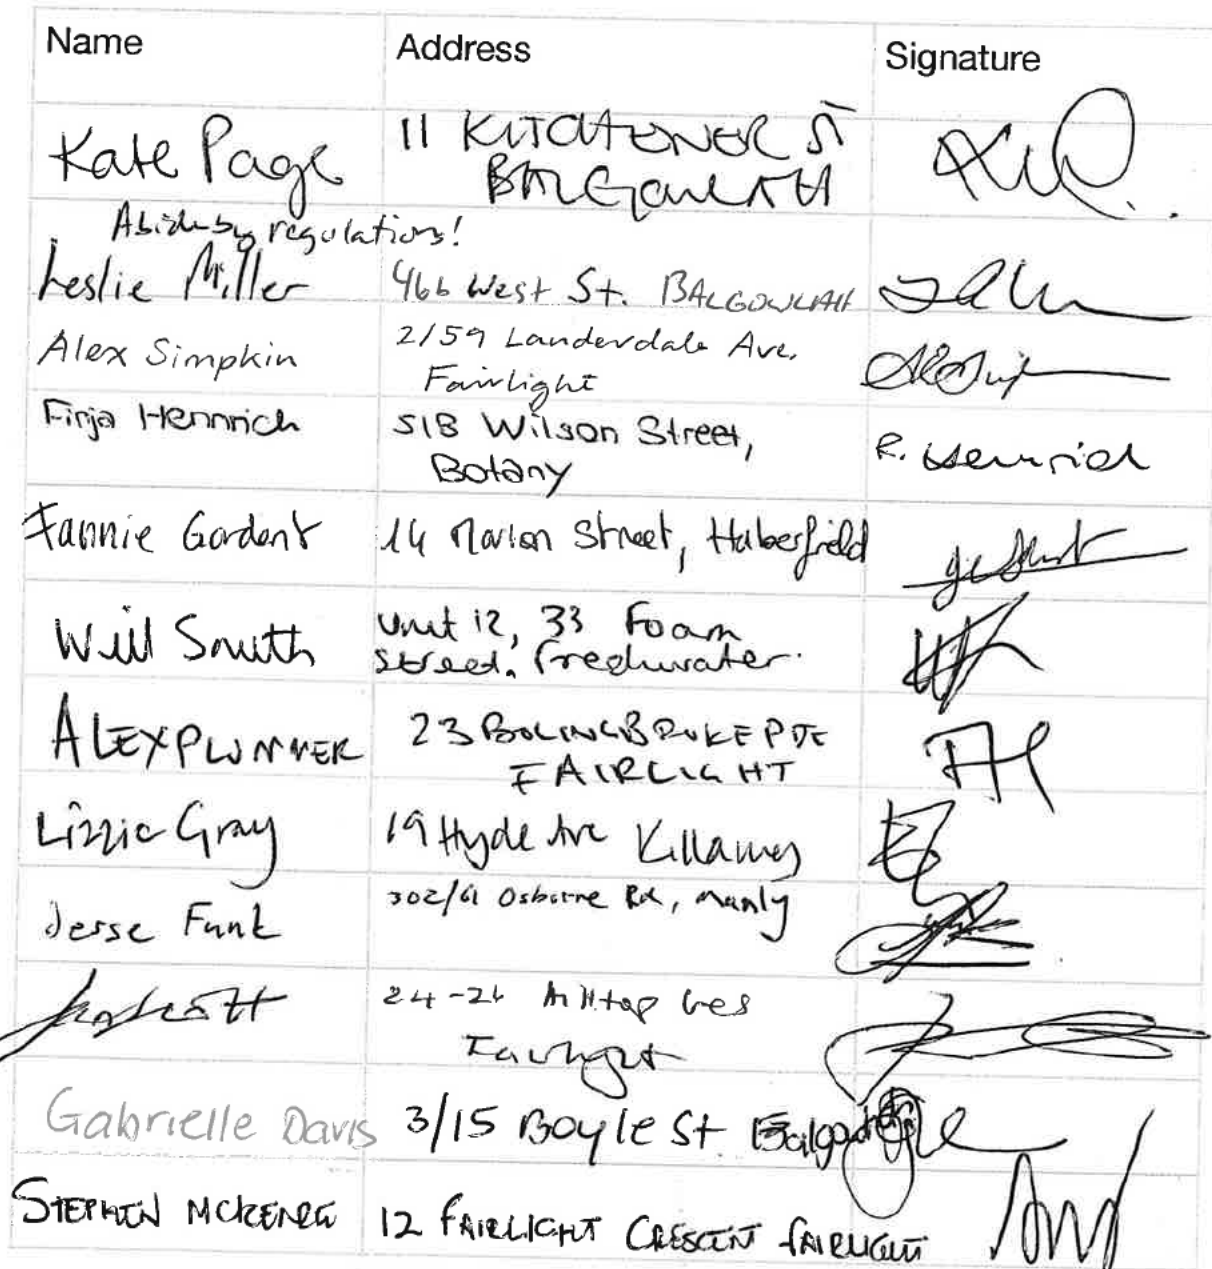 Name Address Signature
Kate Page 11 KITCHENER ST
BALGOWLAH
Abide by regulations!
Leslie Miller 46b West St. BALGOWLAH
Alex Simpkin 2/59 Landerdale Ave,
Fairlight
Finja Hennrich 51B Wilson Street,
Botany
R. Hennrich
Fannie Gordent 14 Marion Street, Haberfield
Will Smith Unit 12, 33 Foam
Street, Freshwater.
ALEX PLUMMER 23 BOLINGBROKE PDE
FAIRLIGHT
Lizzie Gray 19 Hyde Ave Killarney
Jesse Funk 302/61 Osborne Rd, Manly
24-26 Hilltop Cres
Fairlight
Gabrielle Davis 3/15 Boyle St
STEPHEN MCKENZIE 12 FAIRLIGHT CRESCENT FAIRLIGHT